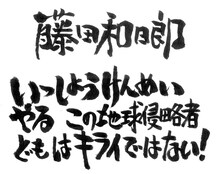 藤田和日郎
いっしょうけんめい
やる この地球侵略者
ともはキライではない!